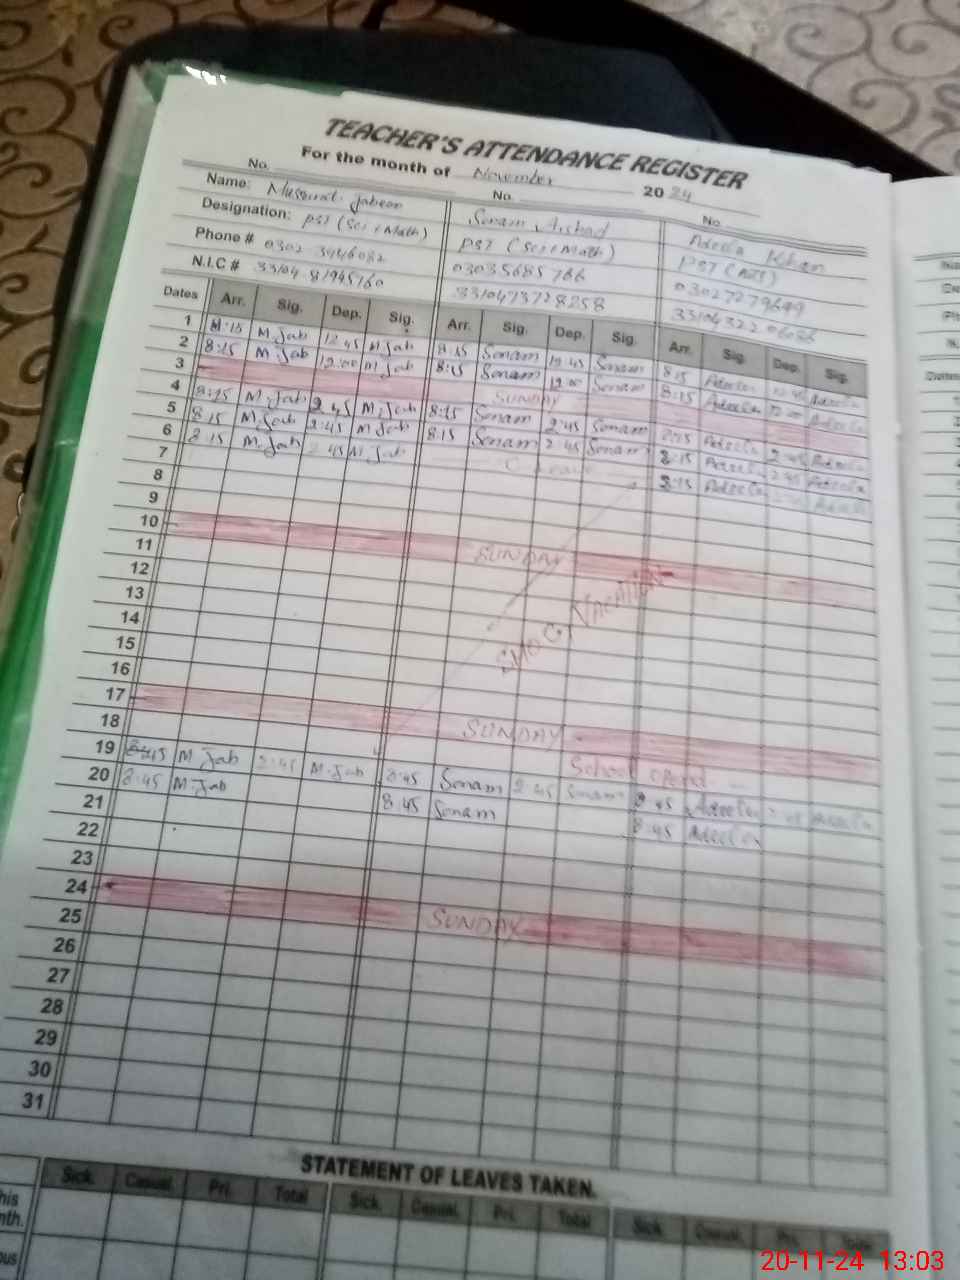 TEACHER'S ATTENDANCE REGISTER
For the month of November 2024
No. No. No.
Name: Mussarat Jabeen Sonam Arshad Adeela Khan
Designation: PST (Sci+Math) PST (Sci+Math) PST (Arts)
Phone # 0302 3446082 03035685766 03027279649
N.I.C #
Dates Arr. Sig. Dep. Sig. Arr. Sig. Dep. Sig. Arr. Sig. Dep. Sig.
1 8:15 M.Jab 12:45 M Jab 8:15 Sonam 12:45 Sonam 8:15 Adeela 12:45 Adeela
2 8:15 M.Jab 12:00 M Jab 8:15 Sonam 12:00 Sonam 8:15 Adeela 12:00 Adeela
3 SUNDAY
4 8:15 M.Jab 2:45 M.Jab 8:15 Sonam 2:45 Sonam 8:15 Adeela 2:45 Adeela
5 8:15 M.Jab 2:45 M Jab 8:15 Sonam 2:45 Sonam 8:15 Adeela 2:45 Adeela
6 8:15 M.Jab 2:45 M.Jab Leave 8:15 Adeela Adeela
7
8
9
10 SUNDAY
11
12
SMOG, VACATION
13
14
15
16
17 SUNDAY
18 School opend
19 8:45 M Jab 2:45 M.Jab 8:45 Sonam 2:45 Sonam 8:45 Adeela 2:45 Adeela
20 8:45 M.Jab 8:45 Sonam 8:45 Adeela
21
22
23
24 SUNDAY
25
26
27
28
29
30
31
STATEMENT OF LEAVES TAKEN.
Sick. Casual. Pri. Total Sick. Casual. Pri. Total Sick. Casual. Pri. Total
20-11-24 13:03